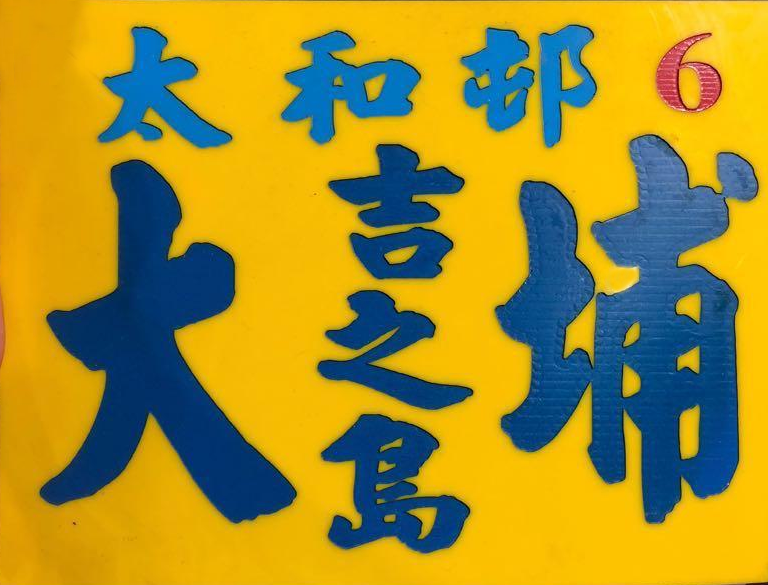 太和邨 6
大埔
吉之島